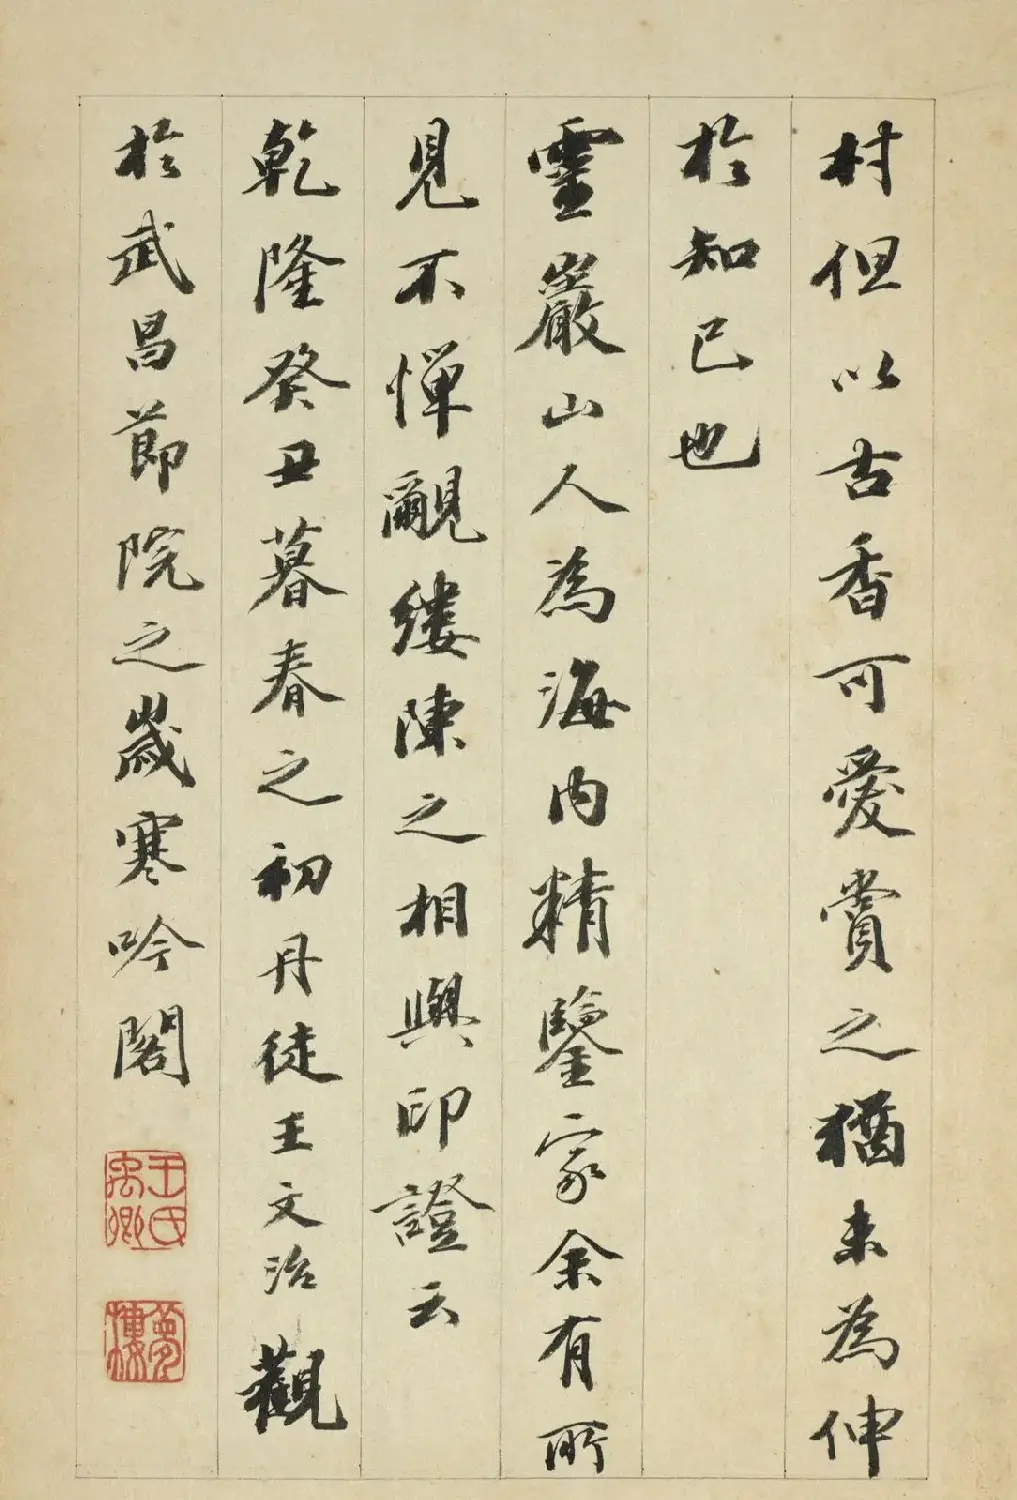 村但以古香可愛賞之猶未為伸
於知己也
靈巖山人為海內精鑒家余有所
見不憚覼縷陳之相與印證云
乾隆癸丑暮春之初丹徒王文治觀
於武昌節院之歲寒吟閣
王氏禹卿
夢樓